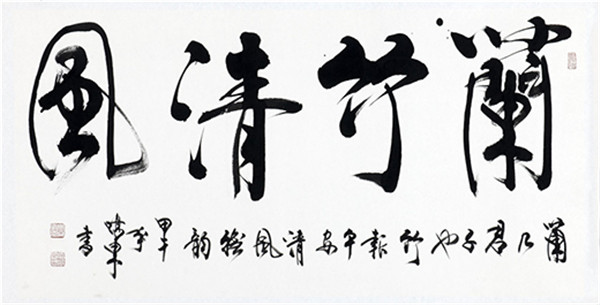 蘭竹清風
蘭乃君子也竹報平安清風韻甲午年
書